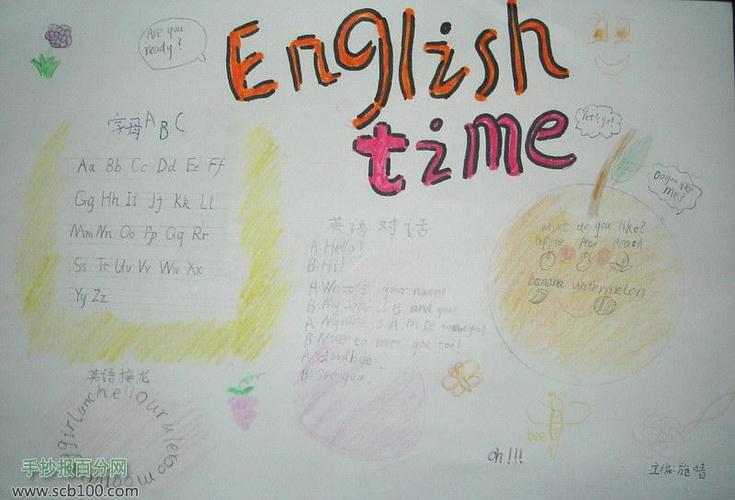 Are you
ready?
English
time
字母ABC
Aa Bb Cc Dd Ee Ff
Gg Hh Ii Jj Kk Ll
Mm Nn Oo Pp Qq Rr
Ss Tt Uu Vv Ww Xx
Yy Zz
英语对话
A: Hello!
B: Hi!
A: What's your name?
B: My name is B, and you?
A: My name is A. Nice
B: Nice to meet you too!
A: Goodbye.
B: See you.
Let's go!
Do you like
me?
what do you like?
apple pear peach
banana watermelon
英语接龙
girlunchellouruleroom
bee
oh!!!
主编:施晴
手抄报百分网
www.scb100.com